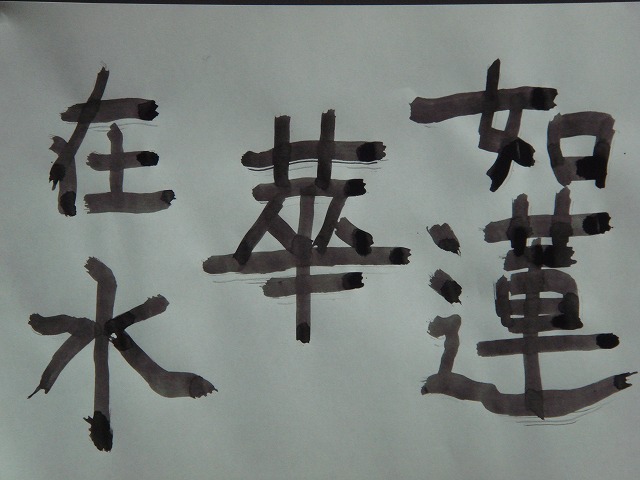 如蓮
華
在水